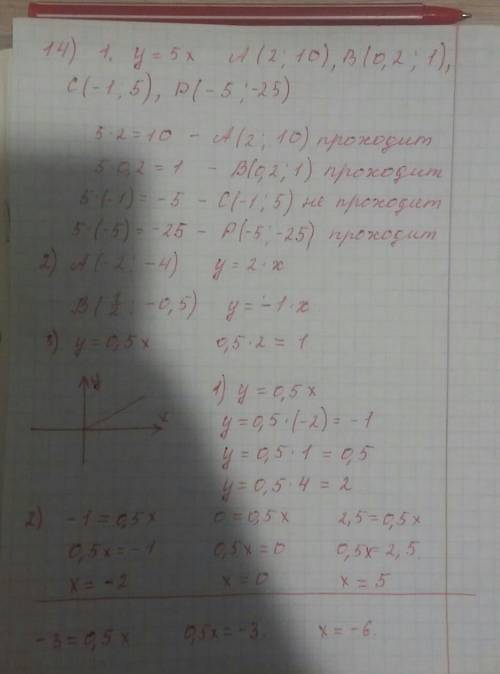 14) 1. y = 5x A(2; 10), B(0,2; 1),
C(-1; 5), D(-5; -25)
5·2=10 - A(2; 10) проходит
5·0,2=1 - B(0,2; 1) проходит
5·(-1)=-5 - C(-1; 5) не проходит
5·(-5)=-25 - D(-5; -25) проходит
2) A(-2; -4) y=2·x
B(1/2; -0,5) y=-1·x
3) y=0,5x 0,5·2=1
y
x
1) y=0,5x
y=0,5·(-2)=-1
y=0,5·1=0,5
y=0,5·4=2
2) -1=0,5x 0=0,5x 2,5=0,5x
0,5x=-1 0,5x=0 0,5x=2,5.
x=-2 x=0 x=5
-3=0,5x 0,5x=-3. x=-6.